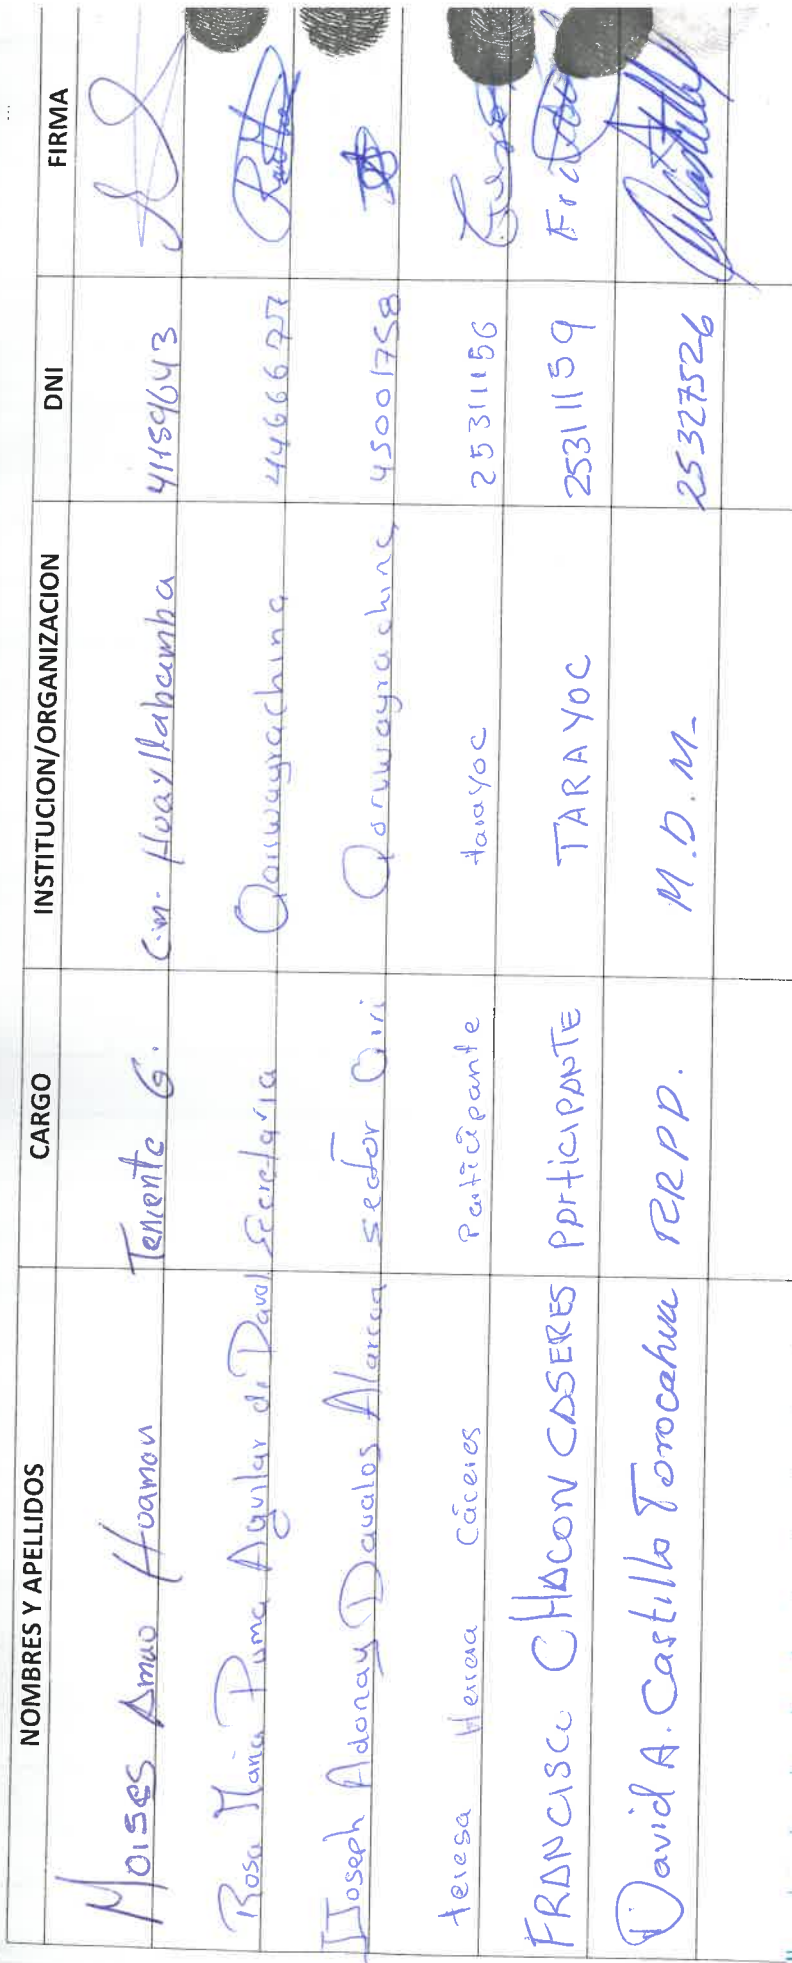 NOMBRES Y APELLIDOS CARGO INSTITUCION/ORGANIZACION DNI FIRMA
MOISES Amao Huaman Teniente G. C.M. Huayllabamba 41159643
Rosa Maria Puma Aguilar d. Daval Secretaria Qoriwayrachina 44666677
Joseph Adonay Davalos Alarcon sector Qori Qoriwayrachina 45001758
teresa Herrera Cáceres Participante tarayoc 25311156
FRANCISCA CHACON CASERES PARTICIPANTE TARAYOC 25311159
David A. Castillo Torocahua RRPP. M.D.M- 25327526